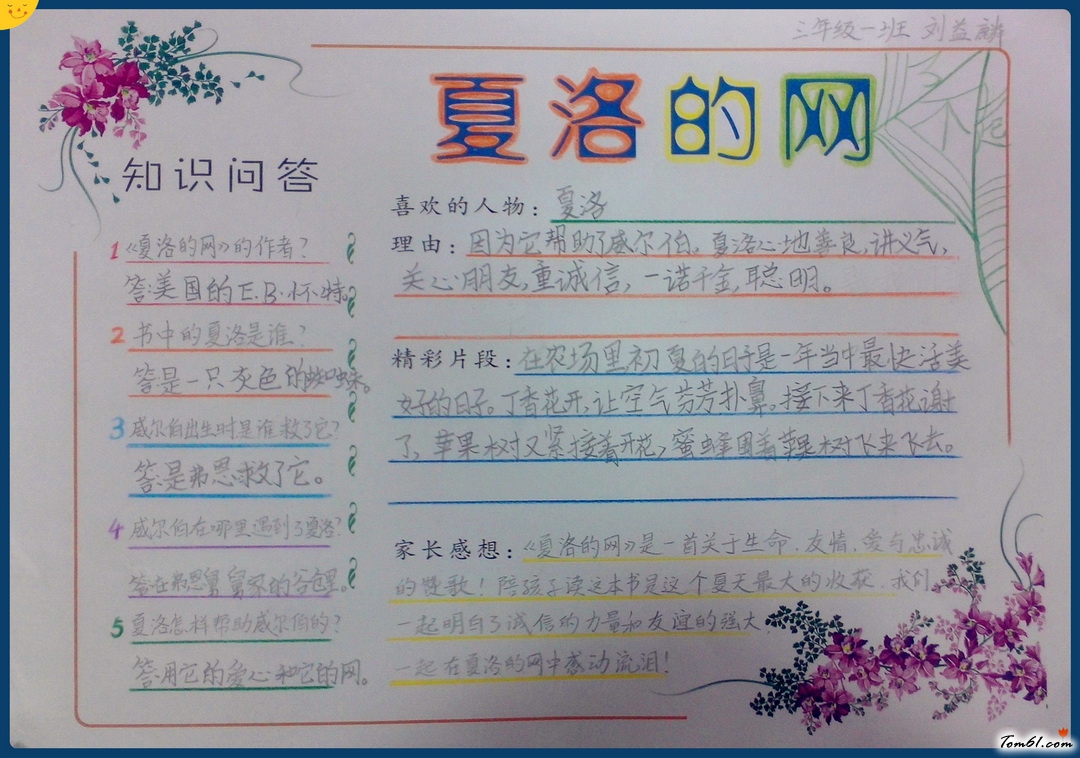 三年级一班 刘益麟
夏洛的网
了不起
知识问答
1《夏洛的网》的作者?
答:美国的E.B.怀特。
2 书中的夏洛是谁?
答是一只灰色的蜘蛛。
3 威尔伯出生时是谁救了它?
答:是弗恩求救了它。
4 威尔伯在哪里遇到了夏洛?
答在弗恩舅舅家的谷仓里。
5 夏洛怎样帮助威尔伯的?
答:用它的爱心和它的网。
喜欢的人物:夏洛
理由:因为它帮助了威尔伯。夏洛心地善良,讲义气,
关心朋友,重诚信,一诺千金,聪明。
精彩片段:在农场里初夏的日子是一年当中最快活美
好的日子。丁香花开,让空气芬芳扑鼻。接下来丁香花谢
了,苹果树又紧接着开花,蜜蜂围着苹果树飞来飞去。
家长感想:《夏洛的网》是一首关于生命、友情、爱与忠诚
的赞歌!陪孩子读这本书是这个夏天最大的收获,我们
一起明白了诚信的力量和友谊的强大,
一起在夏洛的网中感动流泪!
Tom61.com